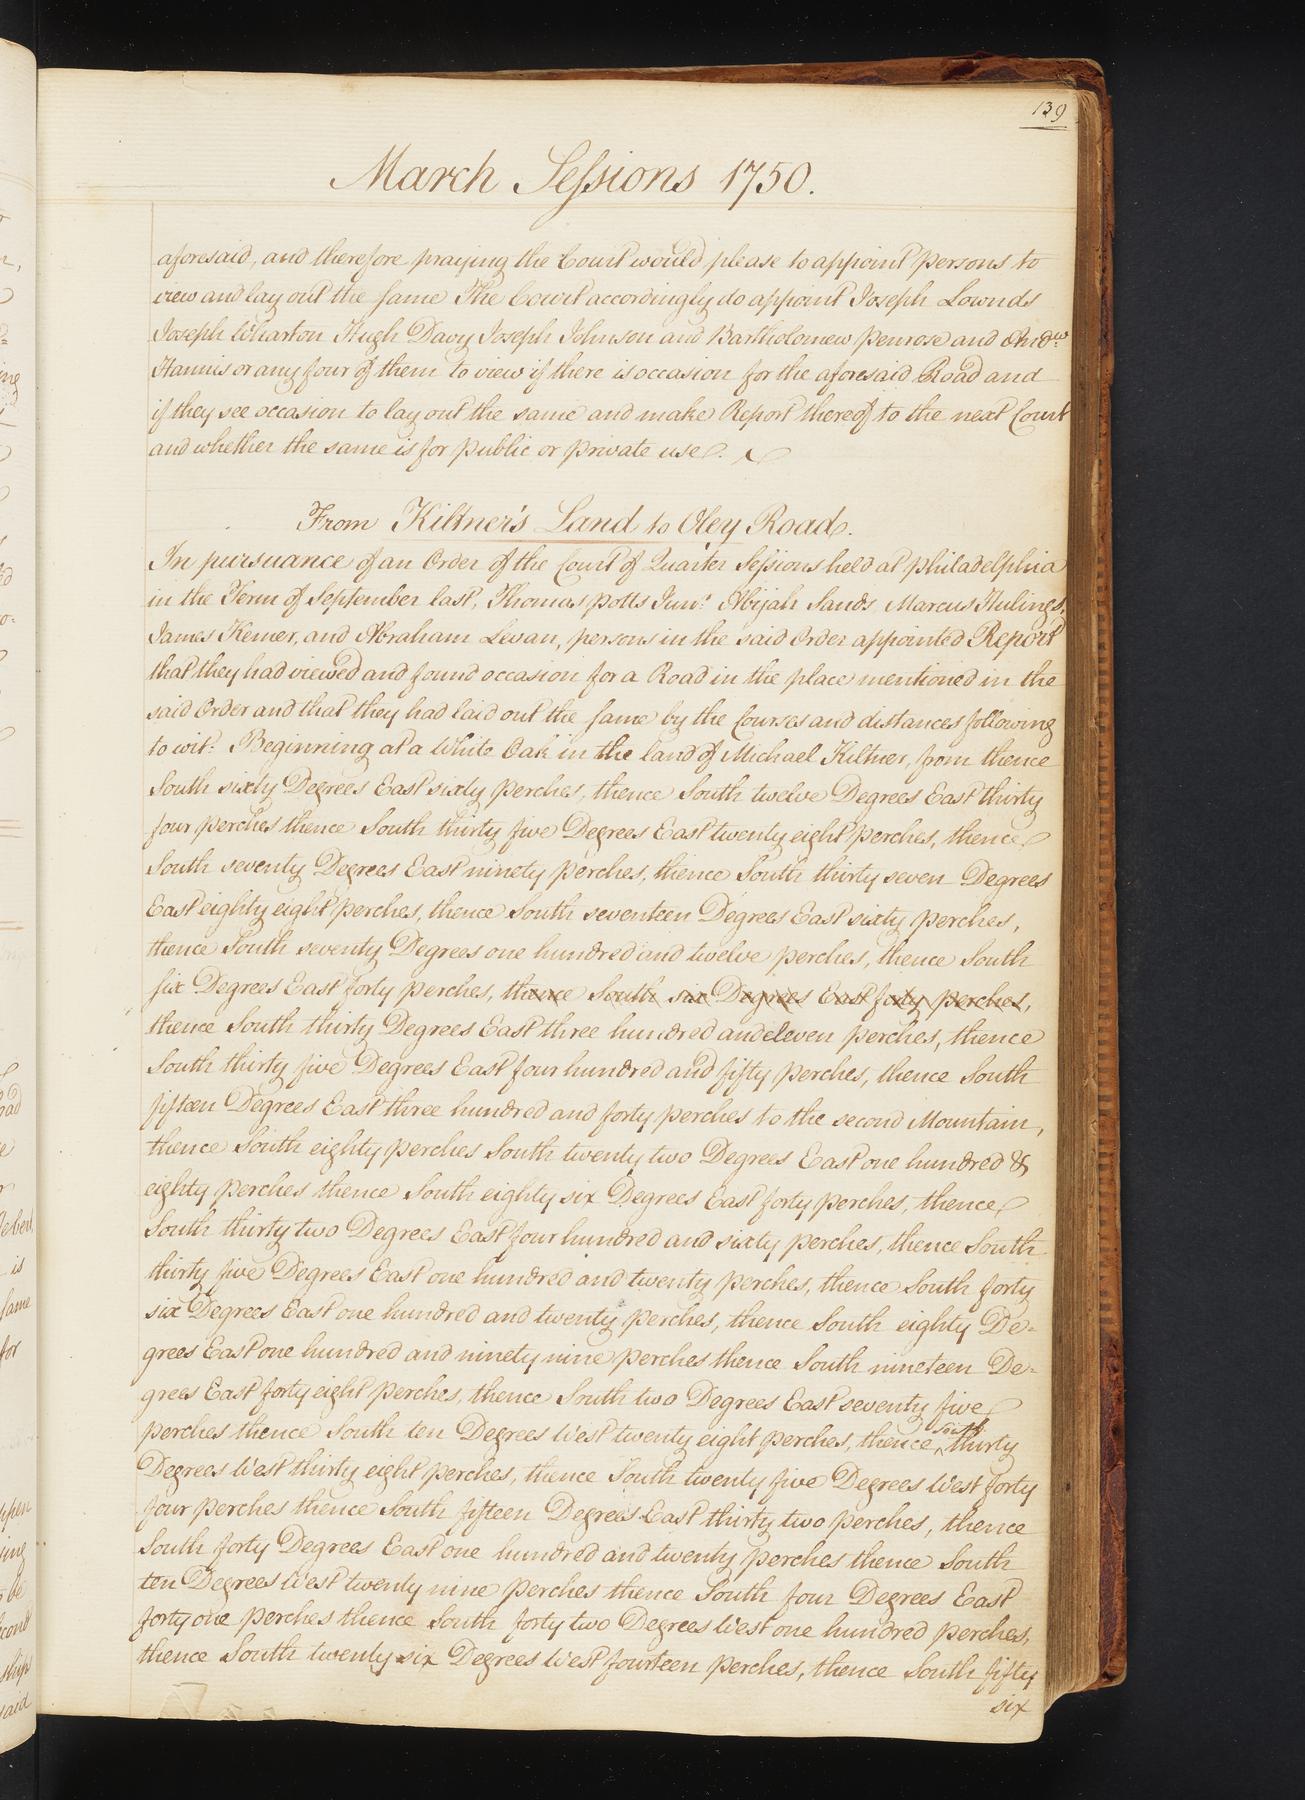 139
March Sessions 1750.
aforesaid, and therefore praying the Court would please to appoint persons to
view and lay out the same The Court accordingly do appoint Joseph Lownds
Joseph Wharton Hugh Davy Joseph Johnson and Bartholomew Penrose and Andw
Hannis or any four of them to view if there is occasion for the aforesaid Road and
if they see occasion to lay out the same and make Report thereof to the next Court
and whether the same is for public or private use.
From Kiltner's Land to Oley Road.
In pursuance of an Order of the Court of Quarter Sessions held at Philadelphia
in the Term of September last, Thomas Potts Junr. Abijah Sands Marcus Hulings,
James Kemer, and Abraham Levan, persons in the said Order appointed Report
that they had viewed and found occasion for a Road in the place mentioned in the
said Order and that they had laid out the same by the Courses and distances following
to wit: Beginning at a White Oak in the land of Michael Kiltner, from thence
South sixty Degrees East sixty perches, thence South twelve Degrees East thirty
four perches thence South thirty five Degrees East twenty eight perches, thence
South seventy Degrees East ninety perches, thence South thirty seven Degrees
East eighty eight perches, thence South seventeen Degrees East sixty perches,
thence South seventy Degrees one hundred and twelve perches, thence South
six Degrees East forty perches, thence South six Degrees East forty perches,
thence South thirty Degrees East three hundred and eleven perches, thence
South thirty five Degrees East four hundred and fifty perches, thence South
fifteen Degrees East three hundred and forty perches to the second Mountain,
thence South eighty perches South twenty two Degrees East one hundred &
eighty perches thence South eighty six Degrees East forty perches, thence
South thirty two Degrees East four hundred and sixty perches, thence South
thirty five Degrees East one hundred and twenty perches, thence South forty
six Degrees East one hundred and twenty perches, thence South eighty De-
grees East one hundred and ninety nine perches thence South nineteen De-
grees East forty eight perches, thence South two Degrees East seventy five
perches thence South ten Degrees West twenty eight perches, thence South thirty
Degrees West thirty eight perches, thence South twenty five Degrees West forty
four perches thence South fifteen Degrees East thirty two perches, thence
South forty Degrees East one hundred and twenty perches thence South
ten Degrees West twenty nine perches thence South four Degrees East
forty one perches thence South forty two Degrees West one hundred perches,
thence South twenty six Degrees West fourteen perches, thence South fifty
six